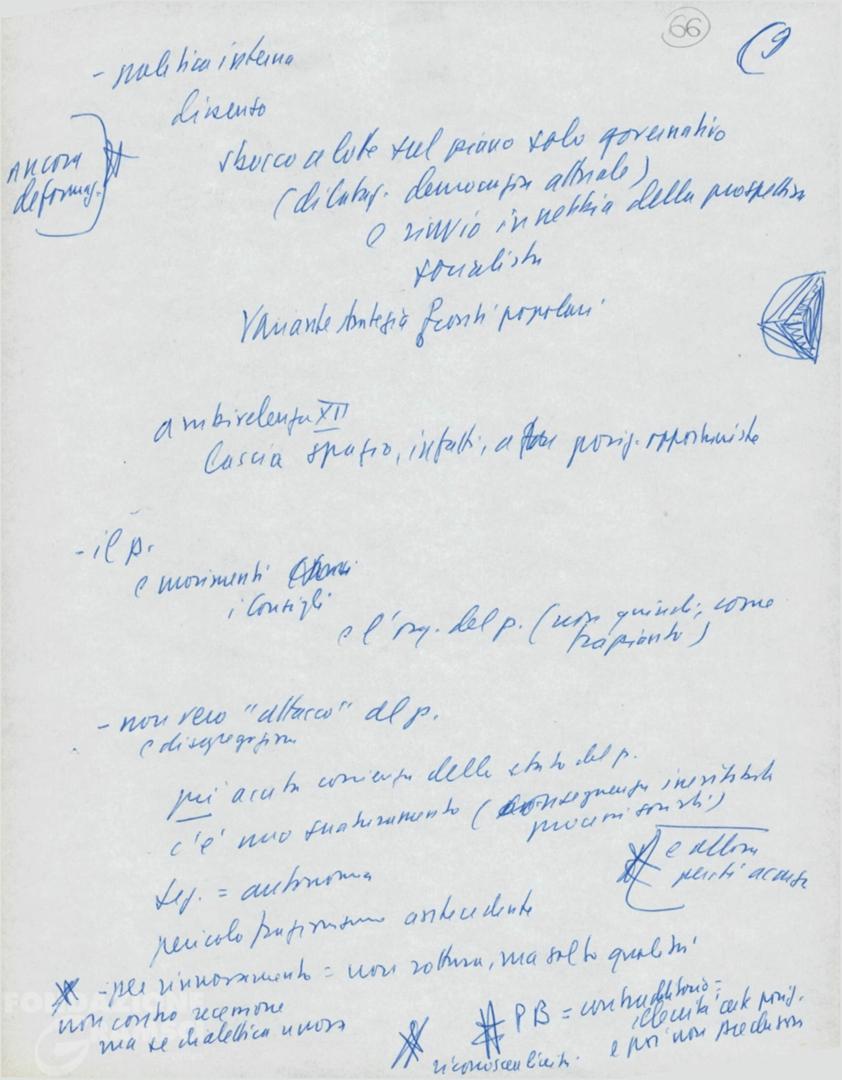 66
(9
- politica interna
dissenso
Ancora
deformaz.
sbocco a lotte sul piano solo governativo
(dilataz. democrazia attuale)
e rinvio in nebbia della prospettiva
socialista
Variante strategia fronti popolari
ambivalenza XII
lascia spazio, infatti, a posiz. opportuniste
- il p.
e movimenti
i Consigli
e l'org. del p. (non quindi, come
trapianto)
- non vero "attacco" al p.
e disgregazione
più acuta coscienza dello stato del p.
c'è uno snaturamento (conseguenza inevitabile
processi sociali)
e allora
perché accusa
seg. = autonomia
pericolo frazionismo antecedente
- per rinnovamento = non rottura, ma salto qualità
non contro recensione
ma se dialettica nuova
PB = contraddittorio =
liceità certe posiz.
e poi non
riconosce liceità
FONDAZIONE